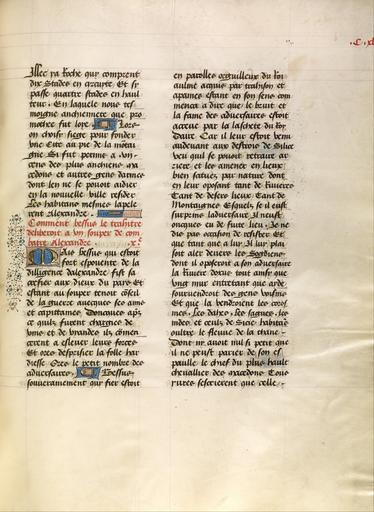 .C. xl
Illec ya Roche qui comprent
dix Stades en circuyte Et si
passe quattre stades en haul
teur. En laquele nous tes
moigne anchiennete que pro
metheus fut loye. Lors
on choisy siege pour fonder
une Cite au pie de la motai
gne. Si fut permis a
ciens des plus anchiens ma
cedons et autres gens darmes
dont len ne se pouoit aidier
en la nouvelle ville resider
Les habitans mesmes lapele
rent Alexandre.
Comment bessus le traittre
delibera a un souper de com
batre Alexandre . x.e
Mais bessus qui estoit
fort espouente de la
diligence dalexandre fist sa
crefier aux dieux du pays Et
estant au souper tenoit coseil
de la guerre aveucques ses amis
et capittaines Doncques apres
ce quilz furent chargies de
vins et de viandes ilz comen
cerent a eslever leurs forces
Et ores desprisier la folle har
diesse Ores le petit nombre des
adversaires. bessus
souverainement qui fier estoit
en parolles orguilleux du Roi
aulme acquis par trahison et
apaines estant en son sens com
menca a dire que le bruit et
la fame des adversaires estoit
accrue par la laschete du roy
Daire Car il leur estoit venu
audevant aux destrois de Silice
veu quil se pouoit retraire ar
riere et les amener en lieux
bien fatues par nature dont
en leur oposant tant de rivieres
Tant de desers lieux Tant de
Montaignes Esquels se il eust
surprins ladversaire Il neust
oncques eu de fuite lieu. Je ne
die pas occasion de resister Et
que tant a luy. Il luy plai
soit aler devers les Sogdiens
dont il oposeroit a son adversaire
la riviere doxus tout ainsy que
ung mur entretant que aide
sourvendroit des gens voisins
Et que la vendroient les coras
mes. Les dahes. les sagues. les
indes et ceulx de Sicie habitans
oultre le fleuve de la thane.
Dont ny avoit nul si petit que
il ne peust parier de son es
paulle le chief du plus hault
chevallier des macedons Tous
yvres sescrierent que celle